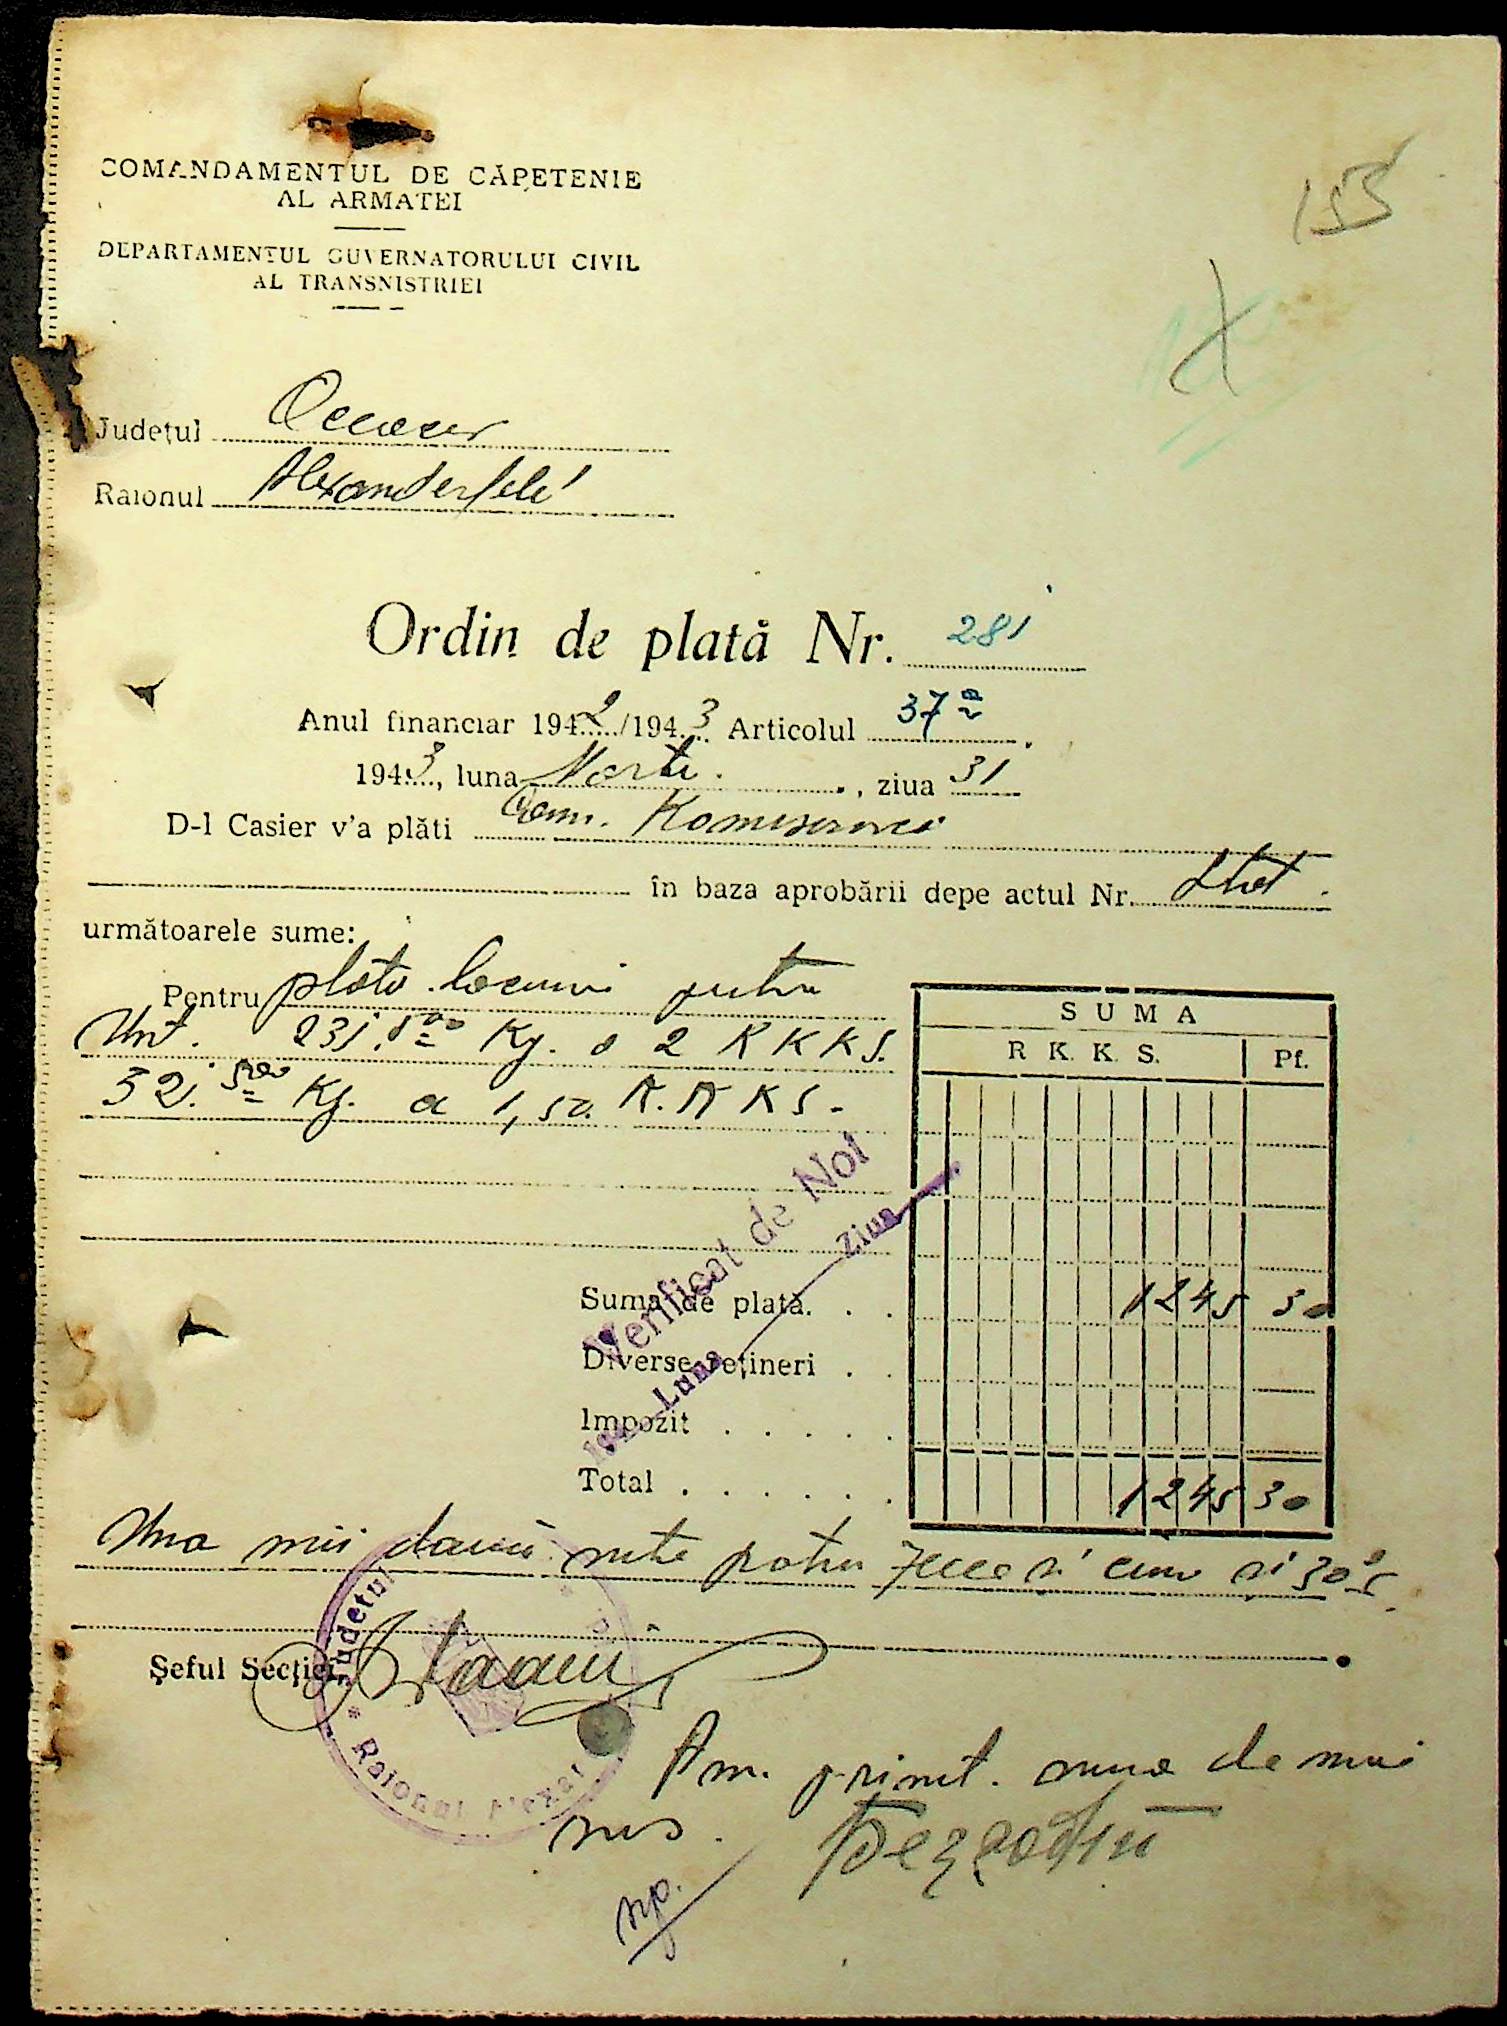 COMANDAMENTUL DE CĂPETENIE
AL ARMATEI
DEPARTAMENTUL GUVERNATORULUI CIVIL
AL TRANSNISTRIEI
153
Județul
Raionul Alexanderfeld
Ordin de plată Nr. 281
Anul financiar 1942/1943 Articolul 37
1943, luna Martie, ziua 31
D-l Casier v'a plăti Com.
în baza aprobării depe actul Nr. Stat
următoarele sume:
Pentru plata pentru
Unt. 231.800 Kg. a 2 RKKS.
a 1,50. R.K K S.
SUMA
R K. K. S. Pf.
Suma de plată. . . 1245 30
Diverse rețineri . .
Impozit . . . . .
Total . . . . . . 1245 30
Verificat de Noi
194 Luna Ziua
Una mii două sute patru zece și cinci și 30
Șeful Secției,
Județul
Raionul Alexan
Am primit suma de mai
sus.